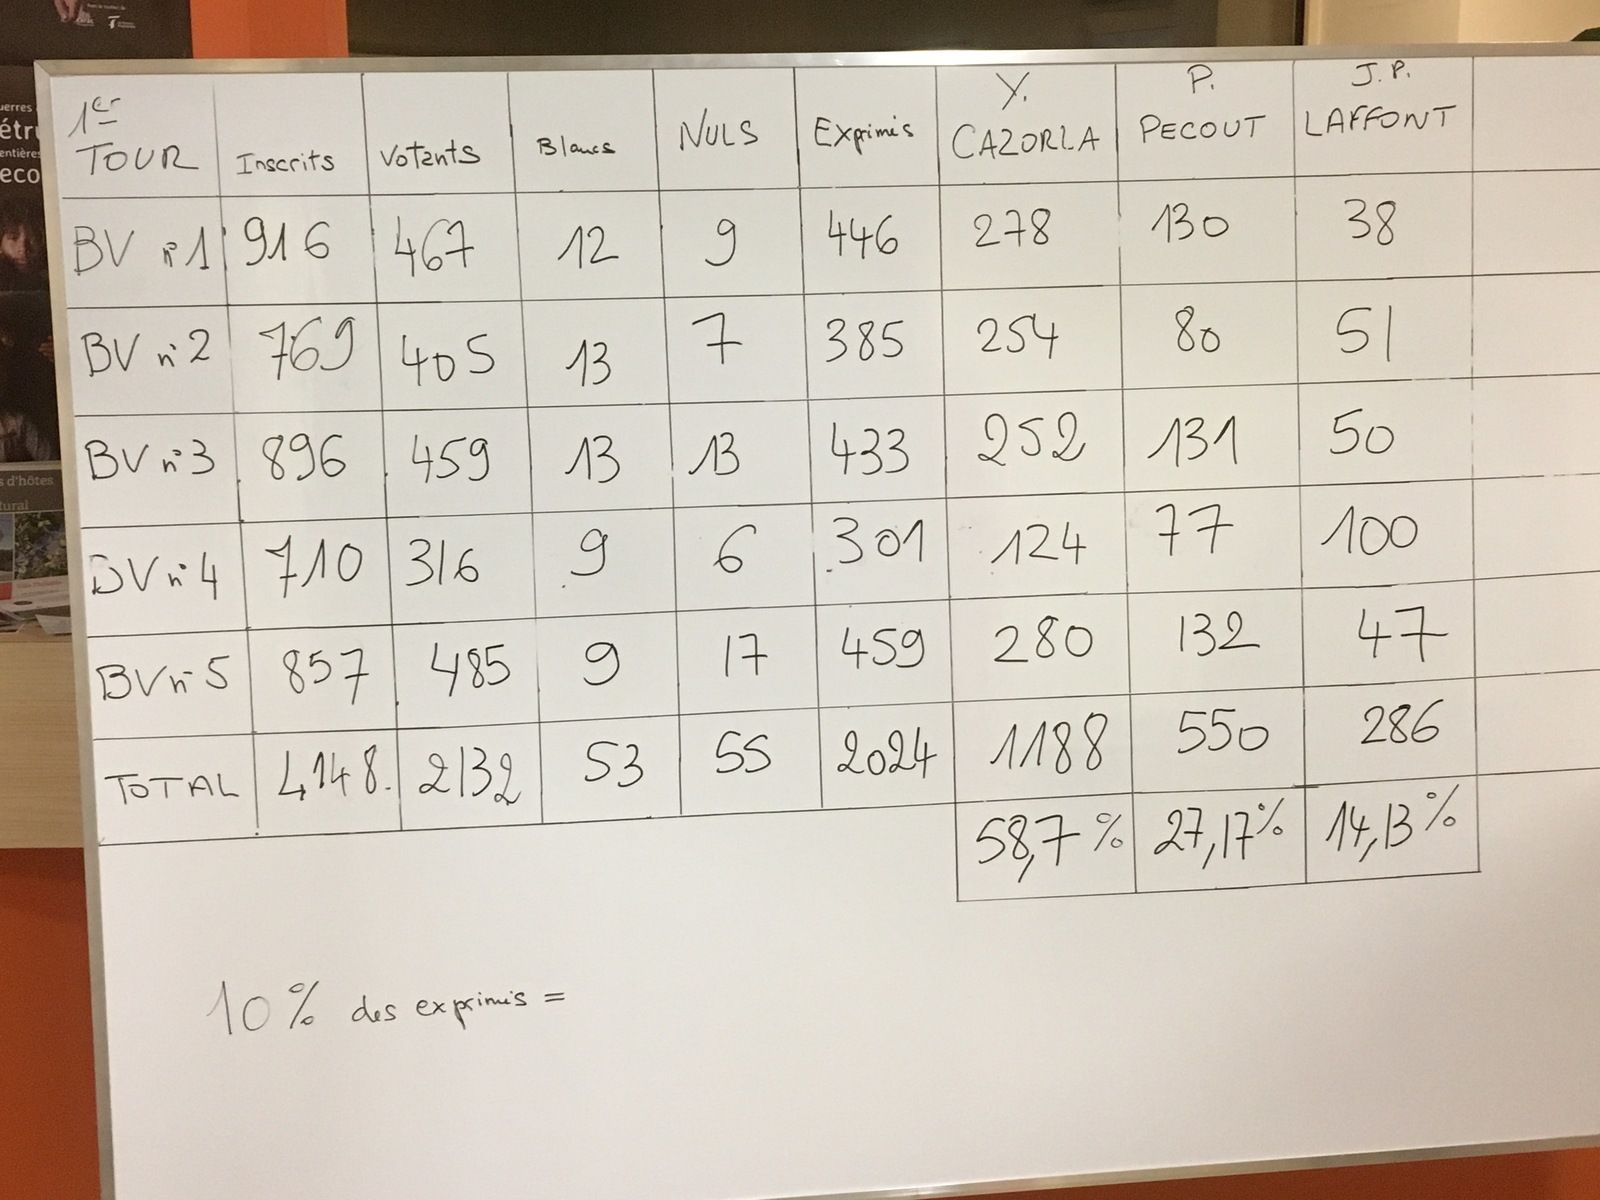 1er TOUR Inscrits Votants Blancs NULS Exprimés Y. CAZORLA P. PECOUT J.P. LAFFONT
BV n°1 916 467 12 9 446 278 130 38
BV n°2 769 405 13 7 385 254 80 51
BV n°3 896 459 13 13 433 252 131 50
BV n°4 710 316 9 6 301 124 77 100
BV n°5 857 485 9 17 459 280 132 47
TOTAL 4148. 2132 53 55 2024 1188 550 286
58,7 % 27,17% 14,13%
10% des exprimés =
s d'hôtes